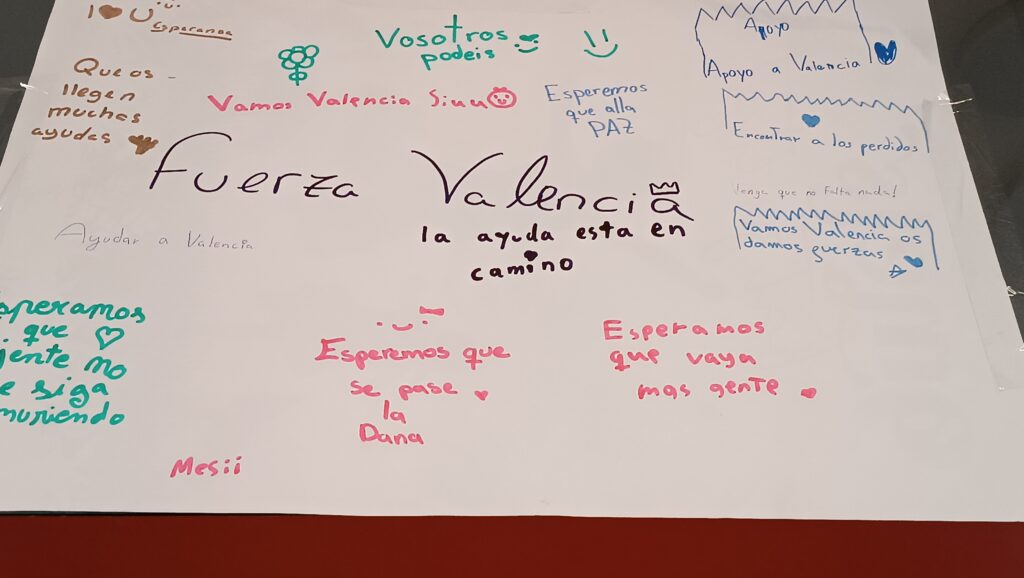 I ❤ U
Esperanza
Que os
llegen
muches
ayudes
Vosotros
podeis
Vamos Valencia Siuu
Esperemos
que alla
PAZ
Apoyo
Apoyo a Valencia
Encontrar a los perdidos
Fuerza Valencia
la ayuda esta en
camino
Ayudar a Valencia
Venga que no falta nada!
Vamos Valencia os
damos guerzas
speramos
que
gente no
e siga
muriendo
Esperemos que
se pase
la
Dana
Esperamos
que vaya
mas gente
Mesii